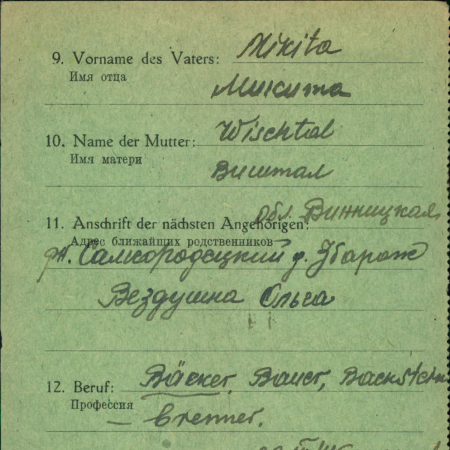 9. Vorname des Vaters: Mikita
Имя отца
Микита
10. Name der Mutter: Wischtal
Имя матери
Виштал
обл. Винницкая
11. Anschrift der nächsten Angehörigen:
Адрес ближайших родственников
рн. Самгородецкий д. Збараж
Вездушна Ольга
12. Beruf: Bäcker, Bauer, Backstein
Профессия
– brenner.